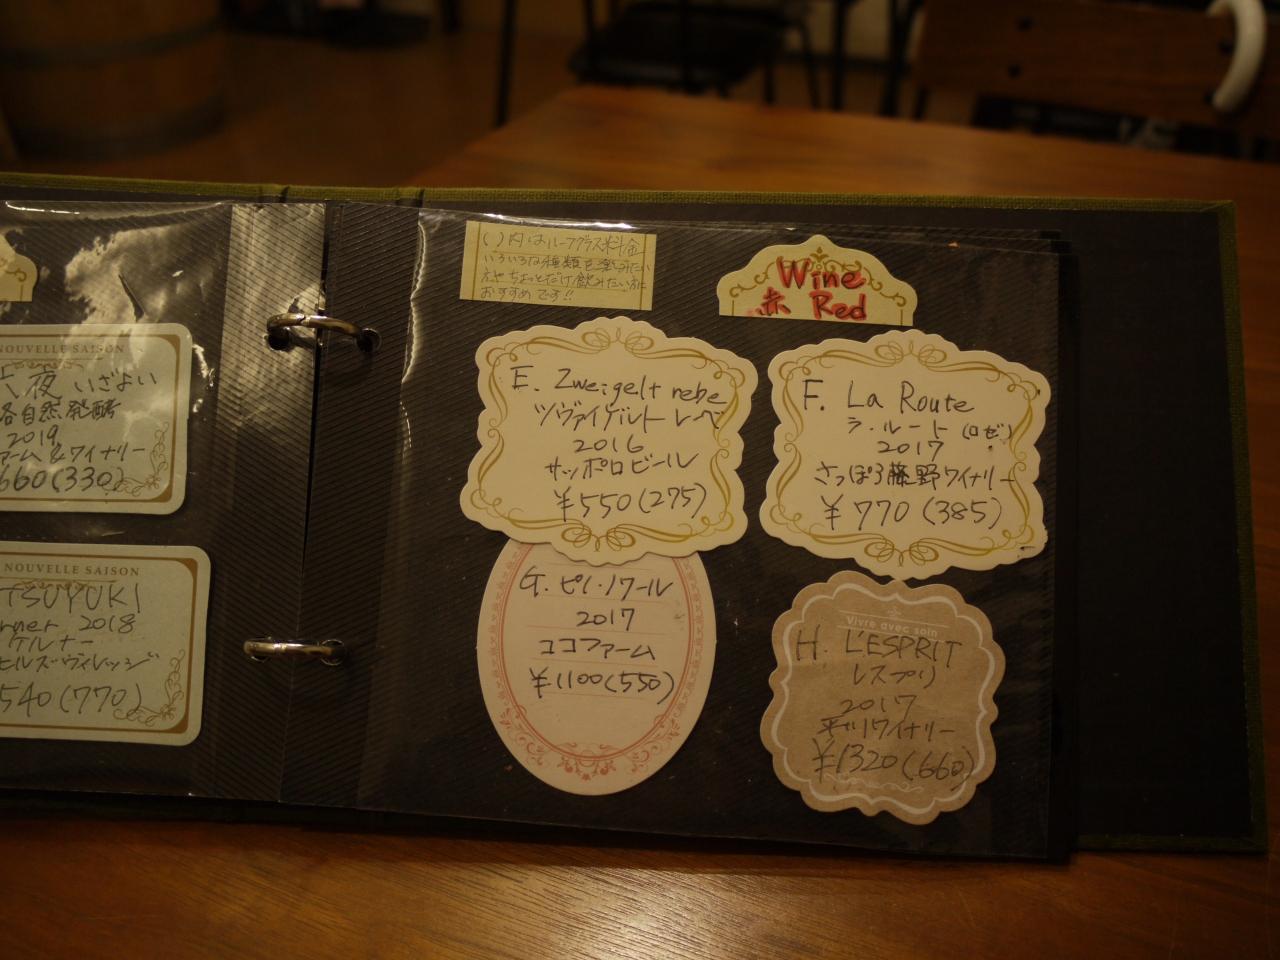 NOUVELLE SAISON
夜 いざよい
各自然発酵
2019
ァーム&ワイナリー
660(330)
NOUVELLE SAISON
TSUYUKI
rner 2018
ケルナー
ヒルズヴィレッジ
540(770)
( )内はハーフグラス料金
いろいろな種類を楽しみたい
方やちょっとだけ飲みたい方に
おすすめです!!
Wine
赤 Red
E. Zweigelt rebe
ツヴァイゲルト レーベ
2016
サッポロビール
¥550(275)
F. La Route
ラ・ルート(ロゼ)
2017
さっぽろ藤野ワイナリー
¥770(385)
G. ピノ・ノワール
2017
ココファーム
¥1100(550)
Vivre avec soin
H. L'ESPRIT
レスプリ
2017
平川ワイナリー
¥1320(660)